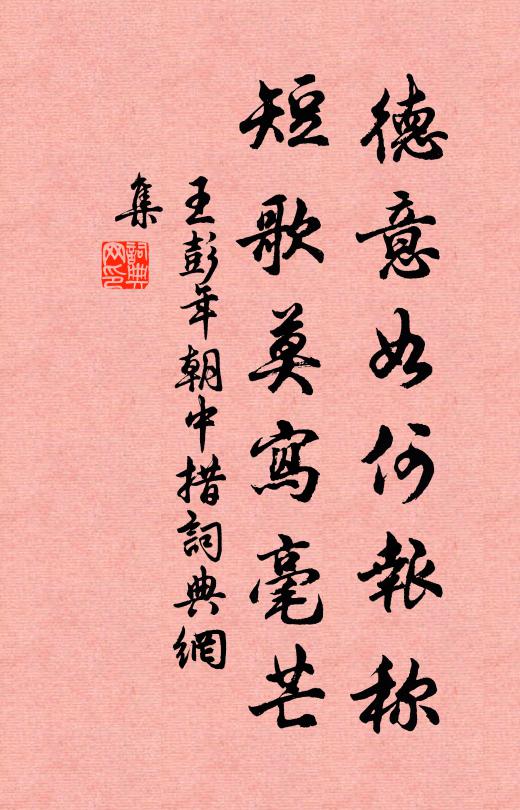 德意如何報称
短歌莫寫毫芒
王彭年朝中措詞典網
集
詞典
网印